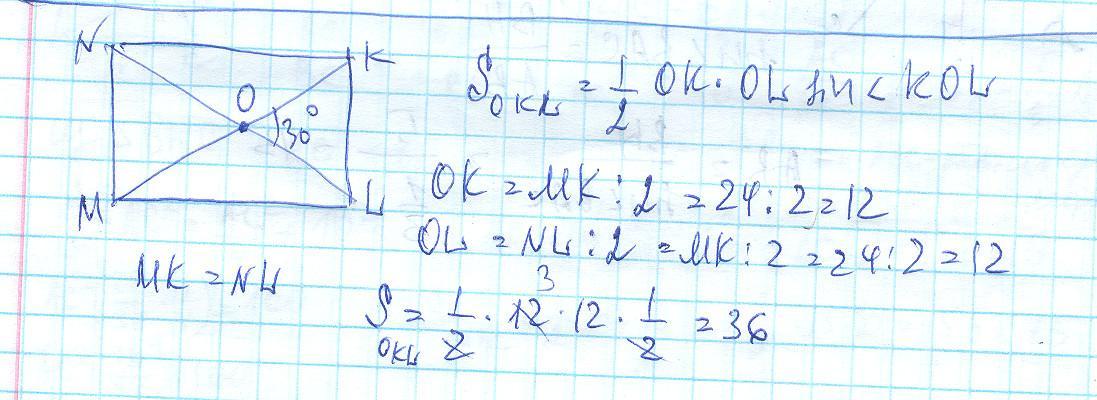 N K
O
30°
M L
S OKL = 1/2 OK · OL sin < KOL
OK = MK : 2 = 24 : 2 = 12
OL = NL : 2 = MK : 2 = 24 : 2 = 12
MK = NL
3
S OKL = 1/2 · 12 · 12 · 1/2 = 36